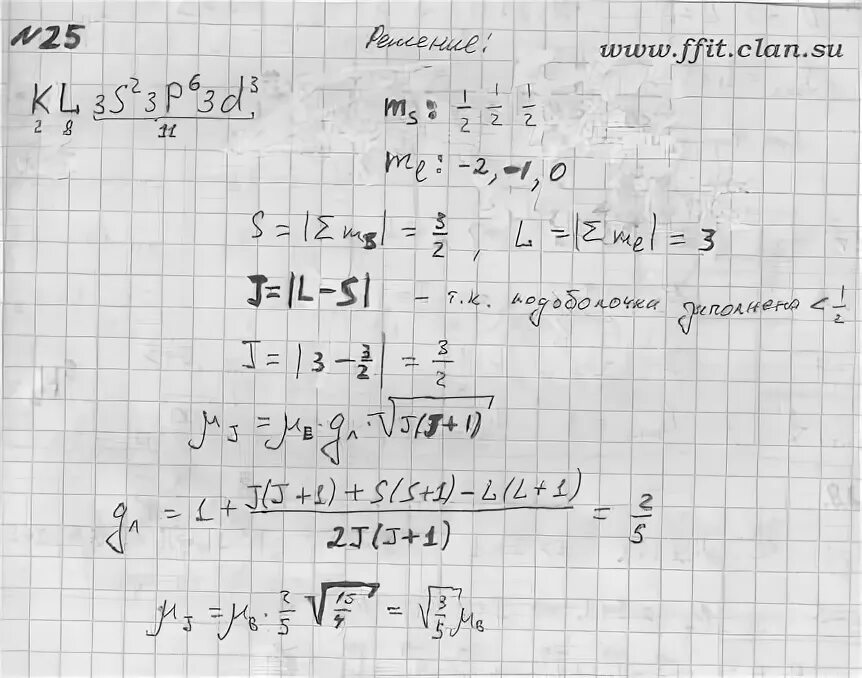 №25 Решение: www.ffit.clan.su
KL 3S²3P⁶3d³
2 8 11
mₛ: 1/2 1/2 1/2
mₗ: -2, -1, 0
S = |Σmₛ| = 3/2, L = |Σmₗ| = 3
J = |L - S| - т.к. подоболочка заполнена < 1/2
J = |3 - 3/2| = 3/2
μ_J = μ_B · g_Л · √(J(J+1))
g_Л = 1 + (J(J+1) + S(S+1) - L(L+1))/(2J(J+1)) = 2/5
μ_J = μ_B · 2/5 √(15/4) = √(3/5) μ_B